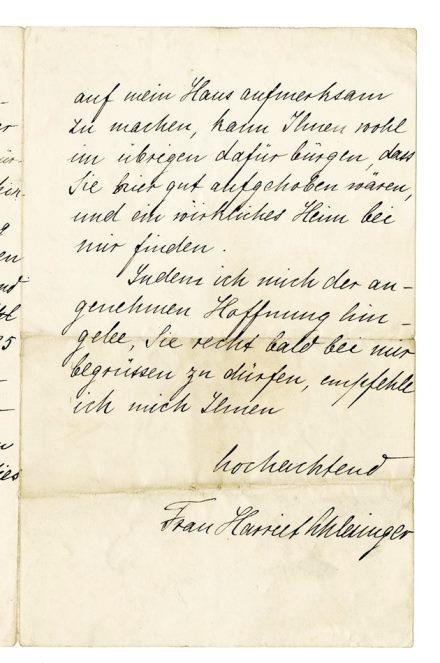 auf mein Haus aufmerksam
zu machen, kann Ihnen wohl
im übrigen dafür bürgen, dass
Sie hier gut aufgehoben wären,
und ein wirkliches Heim bei
mir finden.
Indem ich mich der an-
genehmen Hoffnung hin-
gebe, Sie recht bald bei mir
begrüssen zu dürfen, empfehle
ich mich Ihnen
hochachtend
Frau Harriet Schlesinger